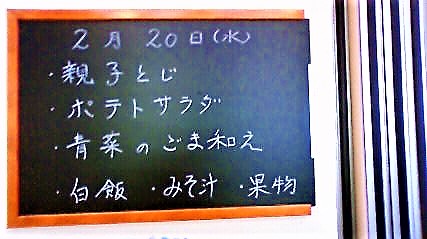 2月20日(水)
・親子とじ
・ポテトサラダ
・青菜のごま和え
・白飯 ・みそ汁 ・果物